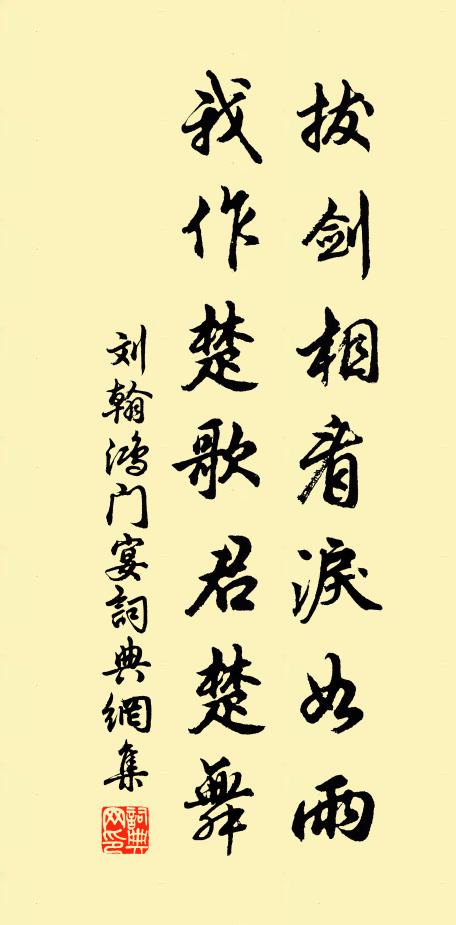 拔剑相看淚如雨
我作楚歌君楚舞
刘翰鸿门宴詞典網集
詞典网印